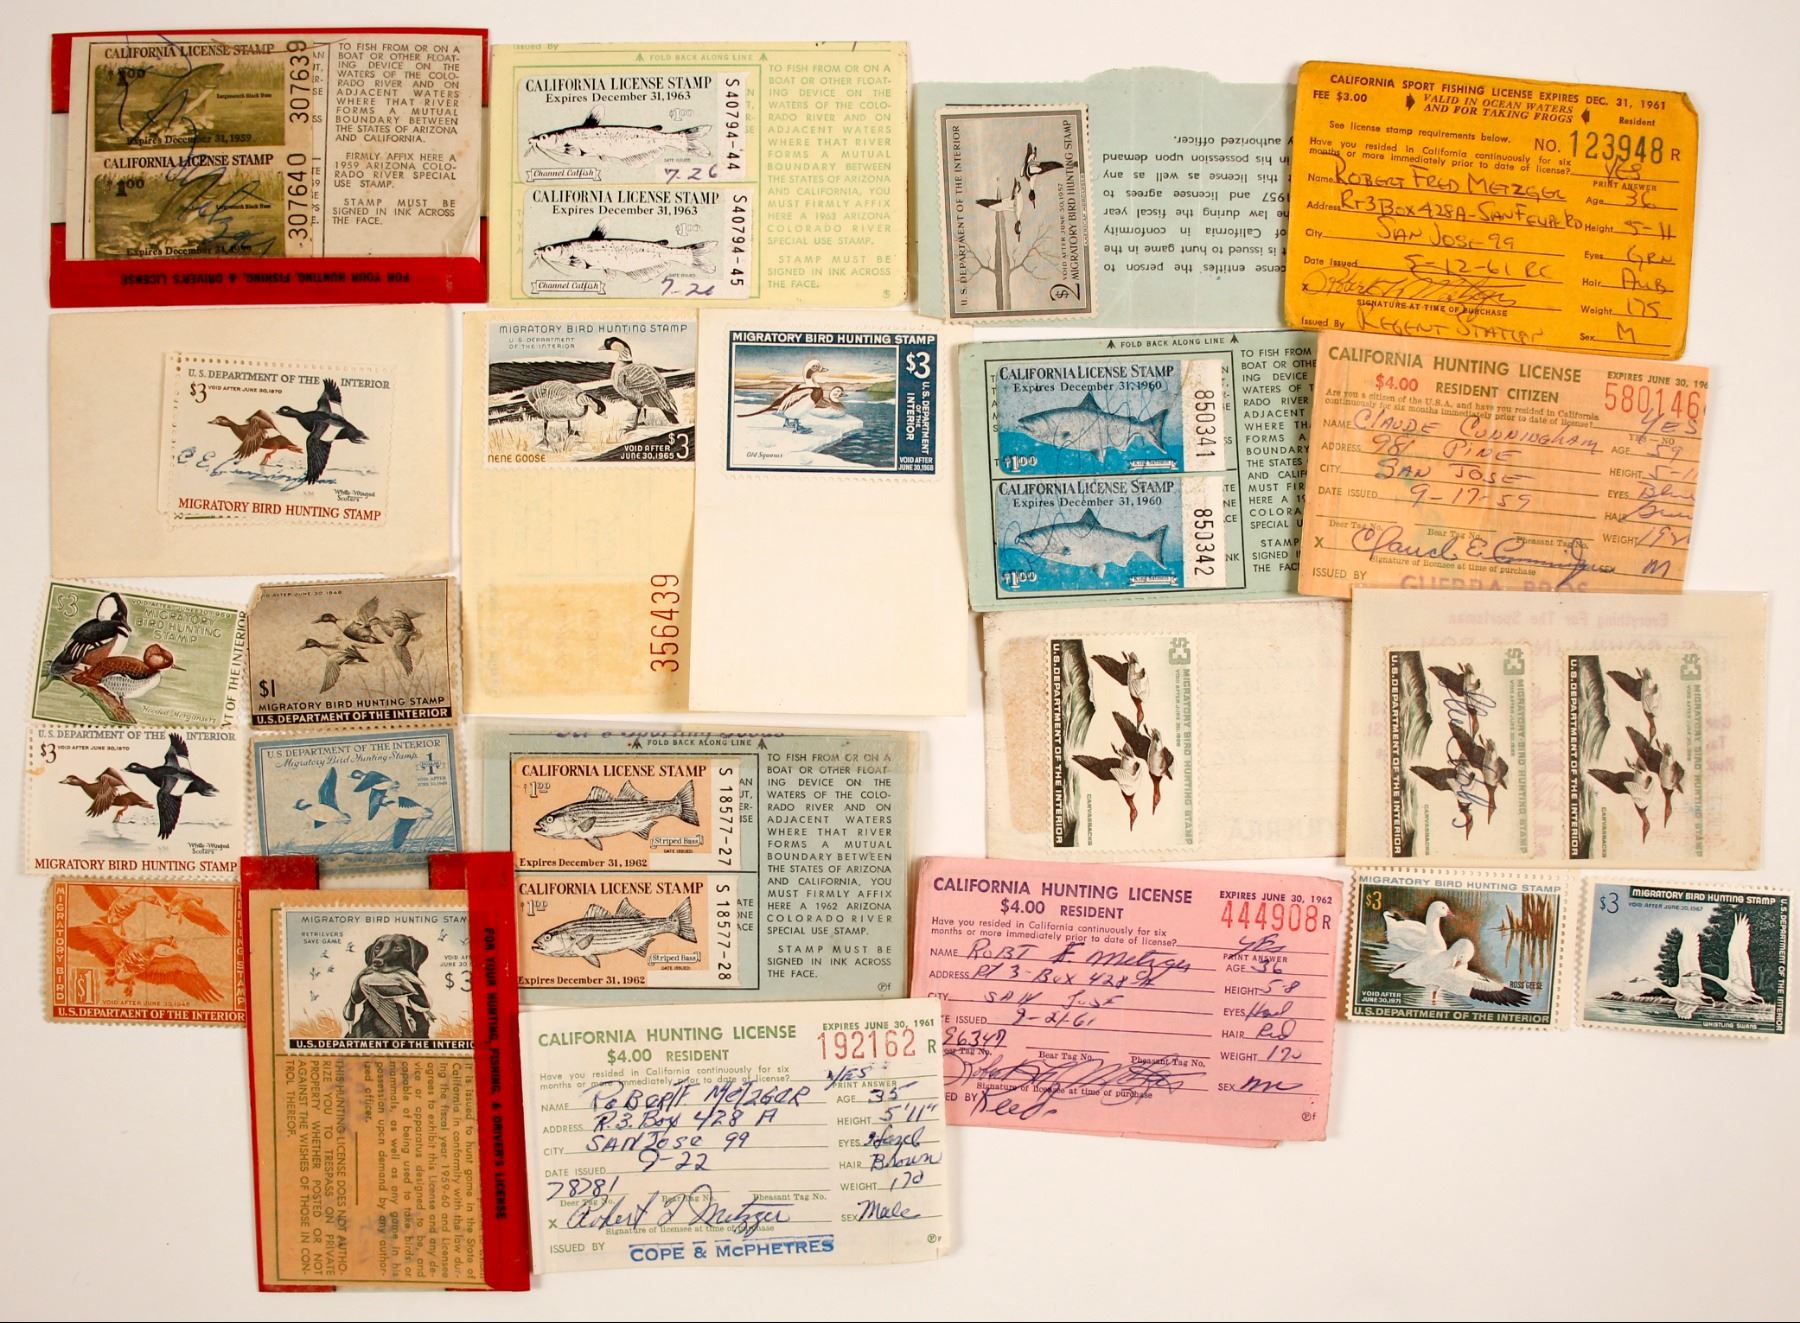 CALIFORNIA LICENSE STAMP
$1.00
Largemouth Black Bass
Expires December 31, 1959
307639
CALIFORNIA LICENSE STAMP
$1.00
Largemouth Black Bass
307640
TO FISH FROM OR ON A
BOAT OR OTHER FLOAT-
ING DEVICE ON THE
WATERS OF THE COLO-
RADO RIVER AND ON
ADJACENT WATERS
WHERE THAT RIVER
FORMS A MUTUAL
BOUNDARY BETWEEN
THE STATES OF ARIZONA
AND CALIFORNIA.
FIRMLY AFFIX HERE A
1959 ARIZONA COLO-
RADO RIVER SPECIAL
USE STAMP.
STAMP MUST BE
SIGNED IN INK ACROSS
THE FACE.
FOR YOUR HUNTING, FISHING, & DRIVER'S LICENSE
Issued By
FOLD BACK ALONG LINE
CALIFORNIA LICENSE STAMP
Expires December 31, 1963
$1.00
DATE ISSUED
Channel Catfish
7-26
S40794-44
CALIFORNIA LICENSE STAMP
Expires December 31, 1963
$1.00
DATE ISSUED
Channel Catfish
7-26
S40794-45
TO FISH FROM OR ON A
BOAT OR OTHER FLOAT-
ING DEVICE ON THE
WATERS OF THE COLO-
RADO RIVER AND ON
ADJACENT WATERS
WHERE THAT RIVER
FORMS A MUTUAL
BOUNDARY BETWEEN
THE STATES OF ARIZONA
AND CALIFORNIA, YOU
MUST FIRMLY AFFIX
HERE A 1963 ARIZONA
COLORADO RIVER
SPECIAL USE STAMP.
STAMP MUST BE
SIGNED IN INK ACROSS
THE FACE.
U.S. DEPARTMENT OF THE INTERIOR
$2
VOID AFTER JUNE 30, 1957
MIGRATORY BIRD HUNTING STAMP
cense entitles the person to
it is issued to hunt game in the
of California in conformity
he law during the fiscal year
1957 and licensee agrees to
t this license as well as any
in his possession upon demand
y authorized officer.
CALIFORNIA SPORT FISHING LICENSE EXPIRES DEC. 31, 1961
FEE $3.00
VALID IN OCEAN WATERS
AND FOR TAKING FROGS
Resident
See license stamp requirements below.
NO. 123948 R
Have you resided in California continuously for six
months or more immediately prior to date of license? YES
PRINT ANSWER
Name ROBERT FRED METZGER Age 36
Address RT 3 BOX 428A-SAN FELIPE RD Height 5-11
City SAN JOSE 99 Eyes GRN
Date Issued 5-12-61 RC Hair AUB
X
SIGNATURE AT TIME OF PURCHASE
Weight 175
Issued By REGENT STATION Sex M
U.S. DEPARTMENT OF THE INTERIOR
$3 VOID AFTER JUNE 30, 1970
White-Winged
Scoters
MIGRATORY BIRD HUNTING STAMP
MIGRATORY BIRD HUNTING STAMP
U.S. DEPARTMENT
OF THE INTERIOR
NENE GOOSE
VOID AFTER
JUNE 30, 1965 $3
356439
MIGRATORY BIRD HUNTING STAMP
$3
U.S. DEPARTMENT
OF THE INTERIOR
Old Squaws
VOID AFTER
JUNE 30, 1968
FOLD BACK ALONG LINE
CALIFORNIA LICENSE STAMP
Expires December 31, 1960
$1.00
King Salmon
850341
CALIFORNIA LICENSE STAMP
Expires December 31, 1960
$1.00
King Salmon
850342
TO FISH FROM
BOAT OR OTHE
ING DEVICE
WATERS OF T
RADO RIVER
ADJACENT
WHERE TH
FORMS A
BOUNDARY
THE STATES
AND CALIF
MUST FIR
HERE A 19
COLORA
SPECIAL U
STAMP
SIGNED I
THE FAC
CALIFORNIA HUNTING LICENSE
EXPIRES JUNE 30, 196
$4.00 RESIDENT CITIZEN
580146
Are you a citizen of the U.S.A. and have you resided in California
continuously for six months immediately prior to date of license? YES
YES - NO
NAME CLAUDE CUNNINGHAM AGE 59
ADDRESS 981 PINE HEIGHT 5-11
CITY SAN JOSE EYES Blue
DATE ISSUED 9-17-59 HAIR
Deer Tag No. Bear Tag No. Pheasant Tag No. WEIGHT
X Claud E Cunningham
Signature of licensee at time of purchase SEX M
ISSUED BY GUERRA BROS
$3
VOID AFTER JUNE 30, 1959
MIGRATORY
BIRD HUNTING
STAMP
Hooded Mergansers
VT OF THE INTERIOR
OID AFTER JUNE 30, 1946
$1
MIGRATORY BIRD HUNTING STAMP
U.S. DEPARTMENT OF THE INTERIOR
U.S. DEPARTMENT OF THE INTERIOR
$3 VOID AFTER JUNE 30, 1970
White-Winged
Scoters
MIGRATORY BIRD HUNTING STAMP
U.S. DEPARTMENT OF THE INTERIOR
Migratory Bird Hunting Stamp
$1
VOID AFTER
MIGRATORY BIRD
$1
VOID AFTER JUNE 30, 1946
U.S. DEPARTMENT OF THE INTERIOR
MIGRATORY BIRD HUNTING STAM
RETRIEVERS
SAVE GAME
$3
U.S. DEPARTMENT OF THE INTERIO
FOR YOUR HUNTING, FISHING, & DRIVER'S LICENSE
it is issued to hunt game in the State of
California in conformity with the law dur-
ing the fiscal year 1959-60 and Licensee
agrees to exhibit this License and any de-
vice or apparatus designed to be, and
capable of being used to take birds or
mammals, as well as any game in his
possession upon demand by any author-
ized officer.
THIS HUNTING LICENSE DOES NOT AUTHO-
RIZE YOU TO TRESPASS ON PRIVATE
PROPERTY WHETHER POSTED OR NOT
AGAINST THE WISHES OF THOSE IN CON-
TROL THEREOF.
FOLD BACK ALONG LINE
CALIFORNIA LICENSE STAMP
$1.00
Striped Bass
DATE ISSUED
Expires December 31, 1962
S18577-27
CALIFORNIA LICENSE STAMP
$1.00
Striped Bass
DATE ISSUED
Expires December 31, 1962
S18577-28
TO FISH FROM OR ON A
BOAT OR OTHER FLOAT-
ING DEVICE ON THE
WATERS OF THE COLO-
RADO RIVER AND ON
ADJACENT WATERS
WHERE THAT RIVER
FORMS A MUTUAL
BOUNDARY BETWEEN
THE STATES OF ARIZONA
AND CALIFORNIA, YOU
MUST FIRMLY AFFIX
HERE A 1962 ARIZONA
COLORADO RIVER
SPECIAL USE STAMP.
STAMP MUST BE
SIGNED IN INK ACROSS
THE FACE.
CALIFORNIA HUNTING LICENSE
EXPIRES JUNE 30, 1961
$4.00 RESIDENT
192162 R
Have you resided in California continuously for six
months or more immediately prior to date of license? YES
PRINT ANSWER
NAME ROBERT F METZGER AGE 35
ADDRESS R.3. Box 428 A HEIGHT 5'11"
CITY SAN JOSE 99 EYES Hazel
DATE ISSUED 9-22 HAIR Brown
78781 WEIGHT 170
Deer Tag No. Bear Tag No. Pheasant Tag No.
X Robert F Metzger SEX Male
Signature of licensee at time of purchase
ISSUED BY COPE & McPHETRES
CALIFORNIA HUNTING LICENSE
EXPIRES JUNE 30, 1962
$4.00 RESIDENT
444908 R
Have you resided in California continuously for six
months or more immediately prior to date of license? YES
PRINT ANSWER
NAME ROBT F Metzger AGE 36
ADDRESS Rt 3-Box 428-A HEIGHT 5-8
CITY SAN JOSE EYES
E ISSUED 9-21-61 HAIR Red
96347 WEIGHT 170
eer Tag No. Bear Tag No. Pheasant Tag No.
Signature of licensee at time of purchase SEX
ED BY Reeds
$3
VOID AFTER JUNE 30, 1966
MIGRATORY BIRD HUNTING STAMP
CANVASBACKS
U.S. DEPARTMENT OF THE INTERIOR
Everything For The Sportsman
$3
MIGRATORY BIRD HUNTING STAMP
CANVASBACKS
U.S. DEPARTMENT OF THE INTERIOR
$3
MIGRATORY BIRD HUNTING STAMP
CANVASBACKS
U.S. DEPARTMENT OF THE INTERIOR
MIGRATORY BIRD HUNTING STAMP
$3
ROSS GEESE
VOID AFTER
JUNE 30, 1971
U.S. DEPARTMENT OF THE INTERIOR
MIGRATORY BIRD HUNTING STAMP
$3
VOID AFTER JUNE 30, 1967
WHISTLING SWANS
U.S. DEPARTMENT OF THE INTERIOR